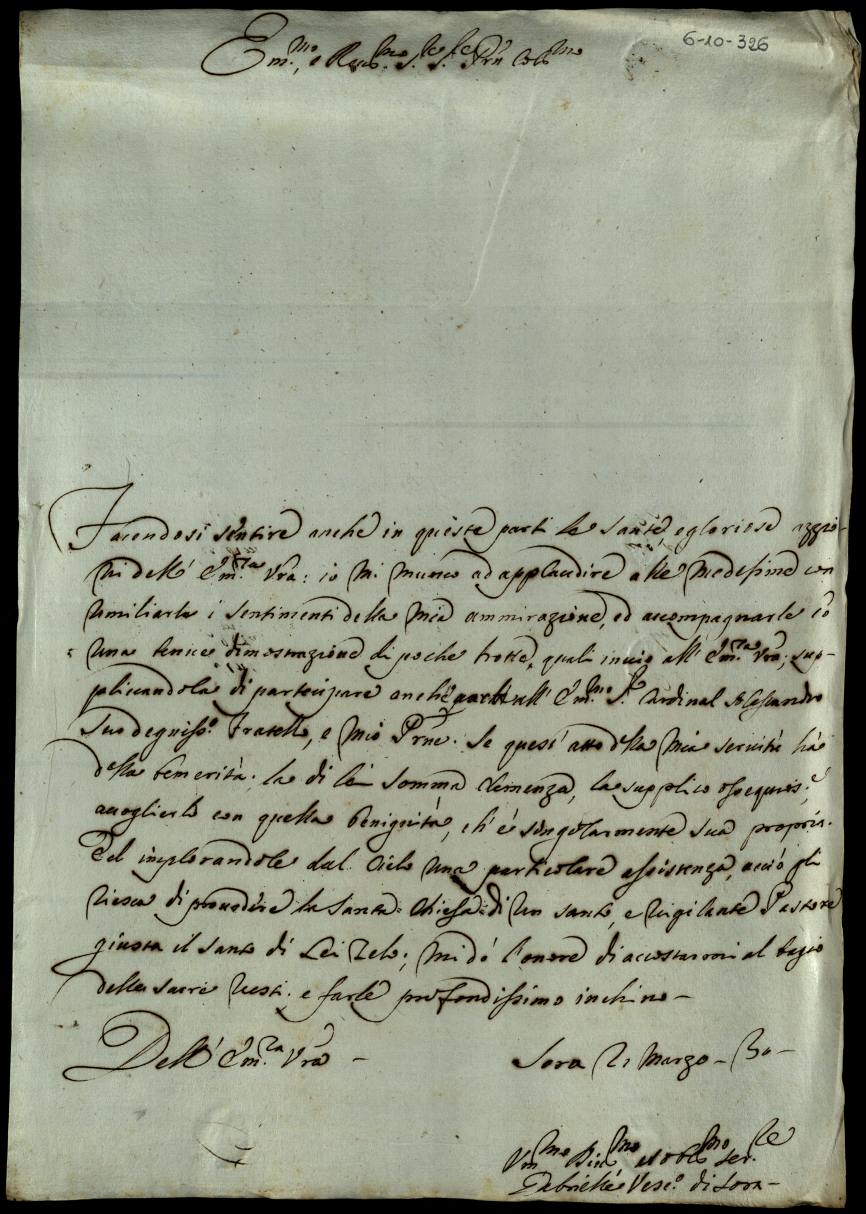 6-10-326
Em.mo, e Reu.mo S.re S.re Prn Col.mo
Facendosi sentire anche in queste parti le sante, e gloriose azzio-
ni dell' Em.za Vra: io mi muouo ad applaudire alle medesime con
umiliarle i sentimenti della mia ammirazione, ed accompagnarle cō
una tenue dimostrazione di poche trotte, quali inuio all' Em.za Vra; sup-
plicandola di partecipare anche all' Em.mo S.r Cardinal Alessandro
suo degniss.o Fratello, e mio Prne. Se quest' atto della mia seruitù hà
della temerità; la di lei somma clemenza, la supplico
accoglierlo con quella benignità, ch' è singolarmente sua propria.
Ed implorandole dal Cielo una particolare assistenza, acciò gli
riesca di prouedere la Santa Chiesa di un santo, e vigilante Pastore
giusta il santo di Lei zelo; mi dò l'onore di accostarmi al bagio
delle sacre vesti. e farle profondissimo inchino -
Dell' Em.za Vra - Sora 21 Marzo - 30 -
Vm.mo Diu.mo ed Obl.mo Ser.re
Gabrielle Vesc.o di Sora -